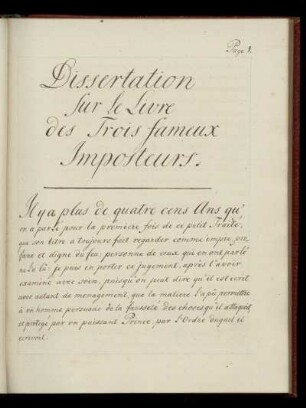 Page 1.
Dissertation
sur le Livre
des Trois fameux
Imposteurs.
Il y a plus de quatre cens Ans qu'
on a parlé pour la premiere fois de ce petit Traité,
que son titre a toujours fait regarder comme impie, pro-
fane et digne du feu; personne de ceux qui en ont parlé
ne l'a lû; je puis en porter ce jugement, après l'avoir
examiné avec soin, puisqu'on peut dire qu'il est ecrit
avec autant de menagement, que la matiere l'a pû permettre
à un homme persuadé de la fausseté des choses qu'il attaquoit
et protegé par un puissant Prince, par l'Ordre duquel il
ecrivoit.